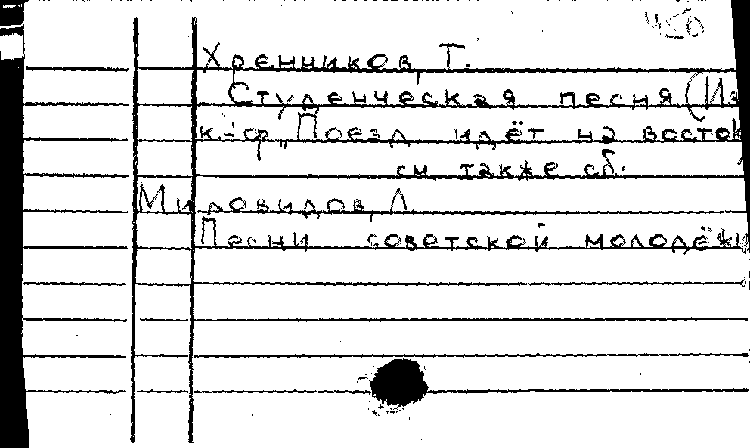 450
Хренников, Т.
Студенческая песня (Из
к-ф „Поезд идёт на восток
см. также сб.
Мировидов, Л.
Песни советской молодёжи